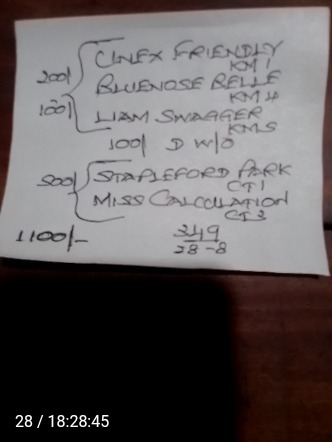 200/ CINEX FRIENDLY
KM 1
BLUENOSE BELLE
KM 4
100/ LIAM SWAGGER
KM 5
100/ D W/O
500/ STAPLEFORD PARK
CT 1
MISS CALCULATION
CT 3
1100/- 349
28-8
28 / 18:28:45